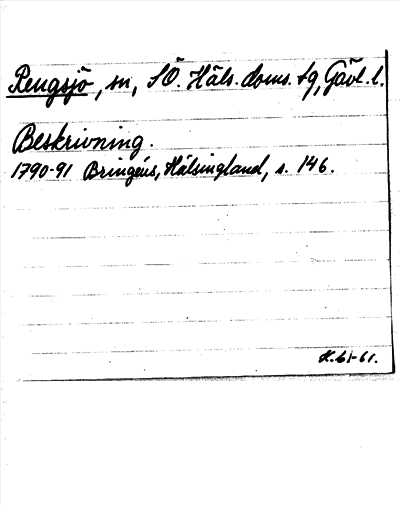 Rengsjö, sn, SÖ. Häls. doms. tg, Gävl. l.
Beskrivning.
1790-91 Bringéus, Hälsingland, s. 146.
K. 61-61.